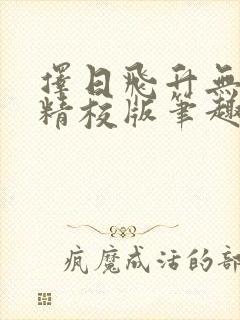 擇日飛升無
精校版筆趣
疯魔成活的部